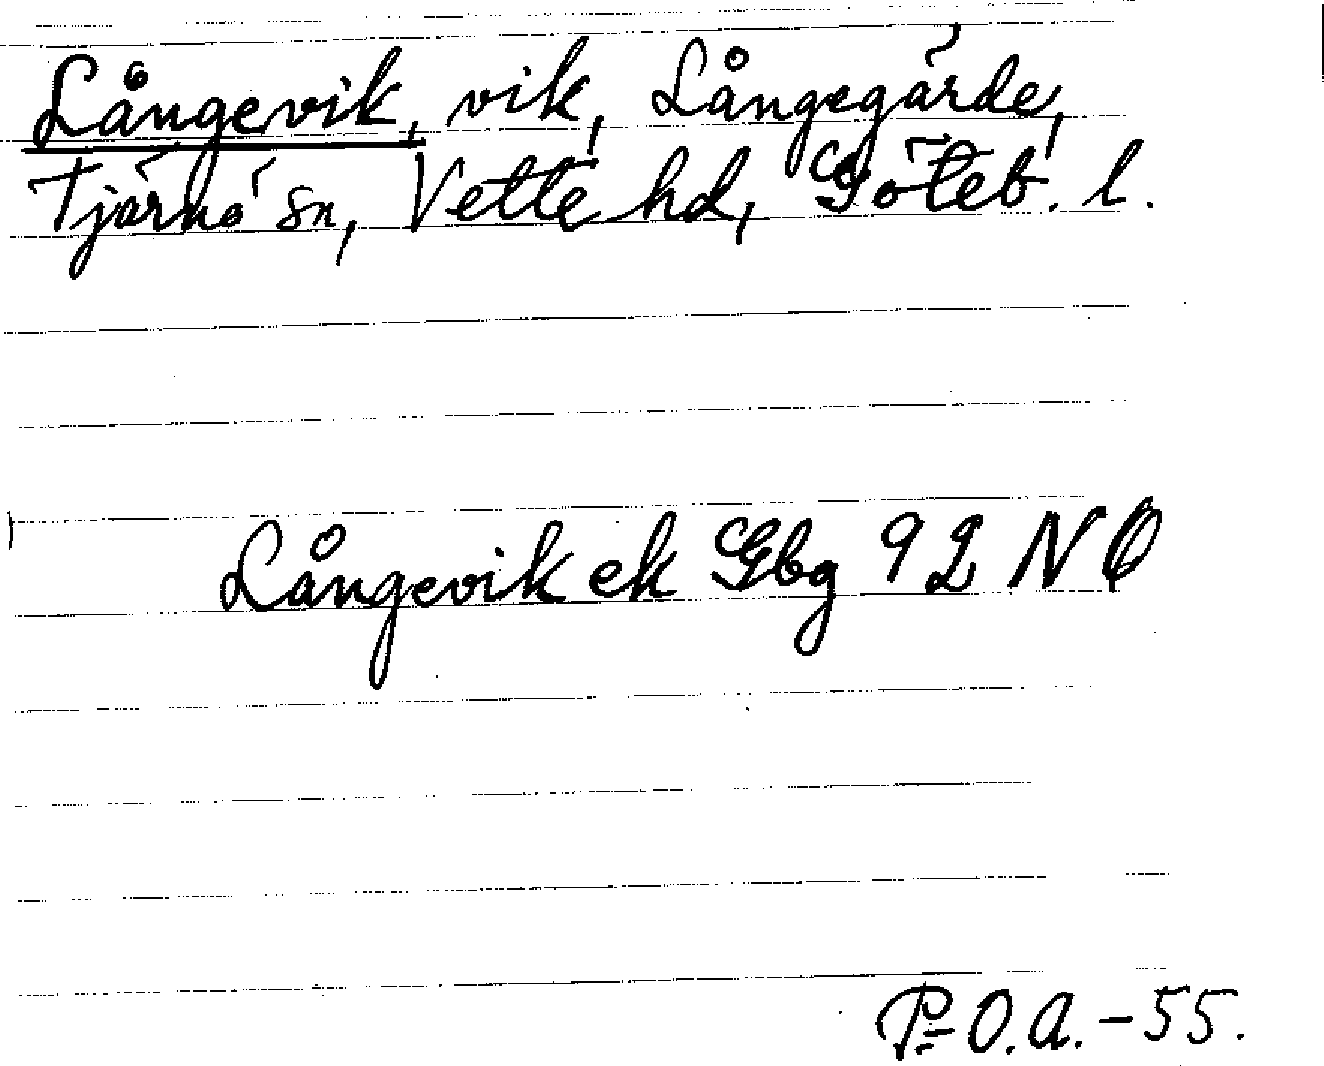 Långevik, vik, Långegärde,
Tjärnö sn, Vette hd, Göteb. l.
Långevik ek Gbg 92 NO
P-O.A.-55.